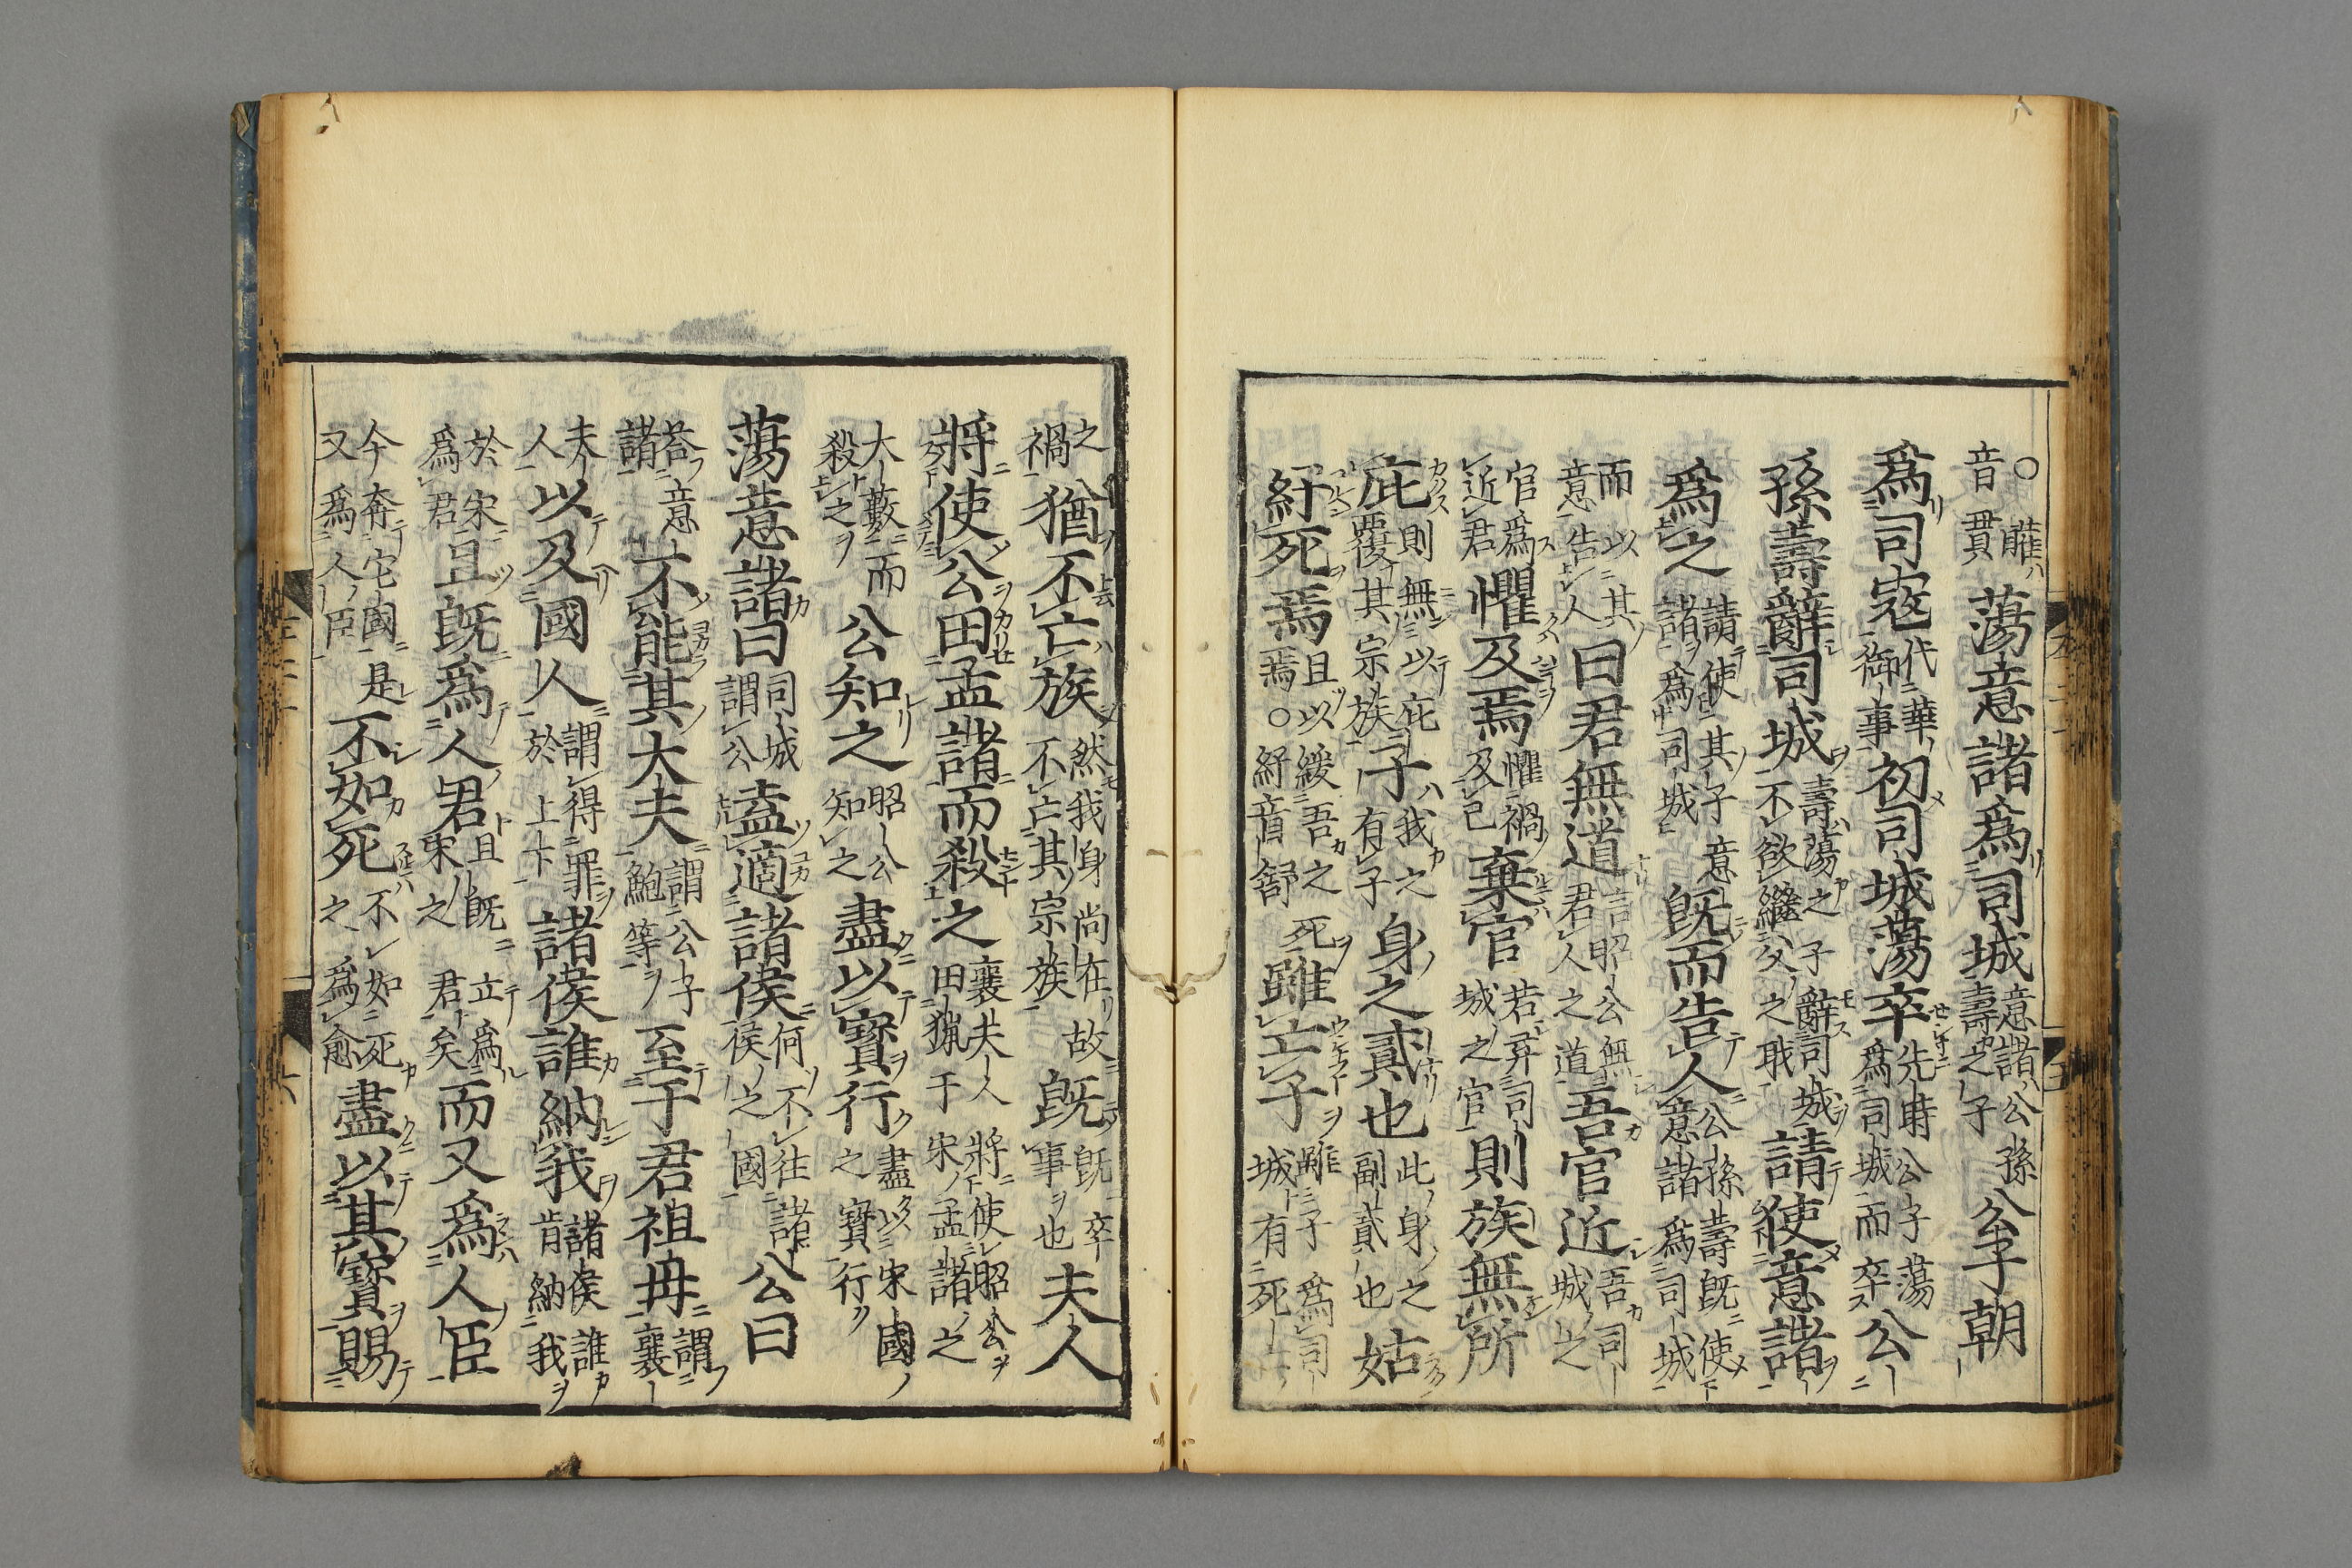 ○䧹音貫蕩意諸爲司城意諸公孫壽之子公子朝
爲司寇代華御事初司城蕩卒先時公子蕩爲司城而卒公
孫壽辭司城壽蕩之子不欲繼父之職辭司城請使意諸
爲之請使其子意諸爲司城既而告人公孫壽既使意諸爲司城
而以其意告人曰君無道言昭公無君人之道吾官近吾司城之
官爲近君懼及焉懼禍及己棄官若弃司城之官則族無所
庇則無以庇覆其宗族子我之有子身之貳也此身之副貳也姑
紓死焉且以緩吾之死焉○紓音舒雖亡子雖子爲司城有死
之禍猶不亡族然我身尚在故不亡其宗族既既卒事也夫人
將使公田孟諸而殺之襄夫人將使昭公田獵于宋孟諸之
大藪而殺之公知之昭公知之盡以寶行盡以宋國之寶行
蕩意諸曰司城謂公盍適諸侯何不往諸侯之國公曰
荅意諸不能其大夫謂公子鮑等至于君祖母謂襄
夫人以及國人謂得罪於上下諸侯誰納我諸侯誰肯納我
且既爲人君且既立爲宋之君矣而又爲人臣
今奔它國是又爲人臣不如死不如死之爲愈盡以其寶賜